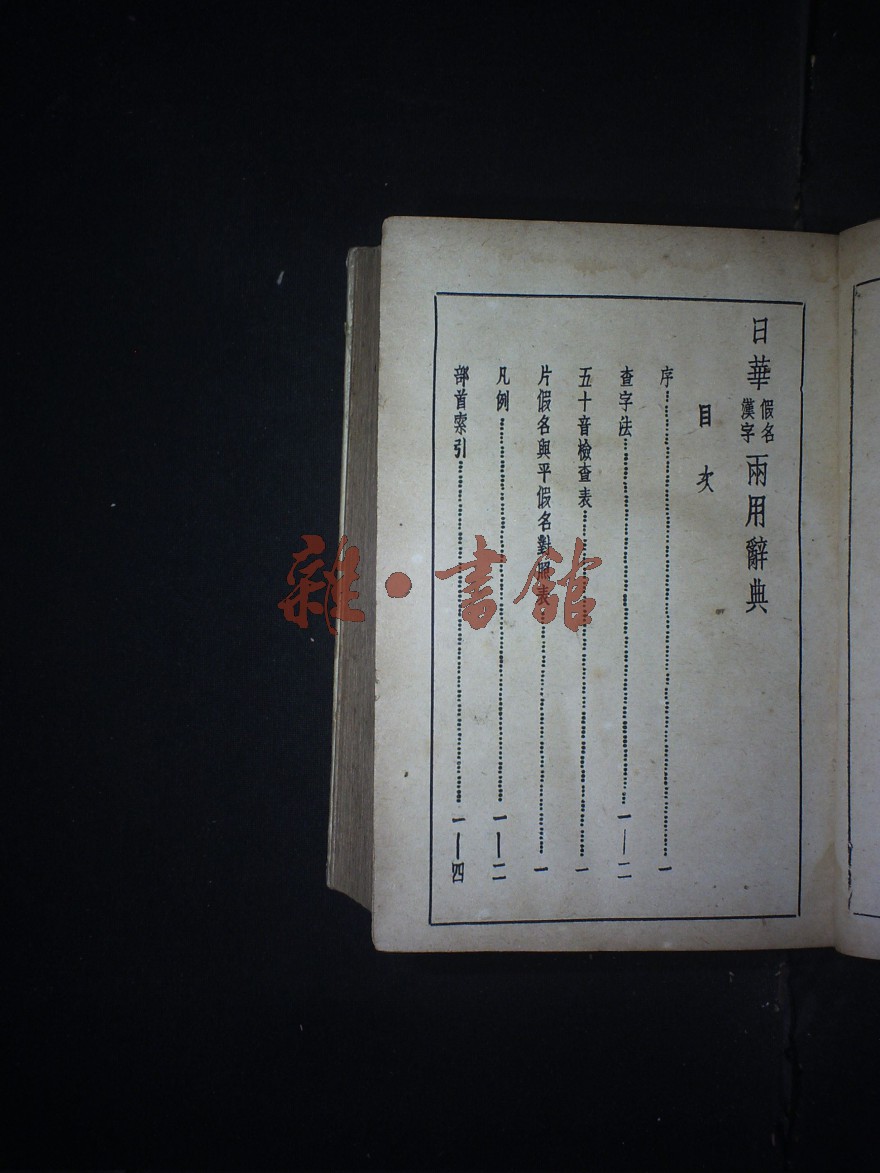 日華假名漢字兩用辭典
目次
序……一
查字法……一—二
五十音檢查表……一
片假名與平假名對照表……一
凡例……一—二
部首索引……一—四
雜·書館